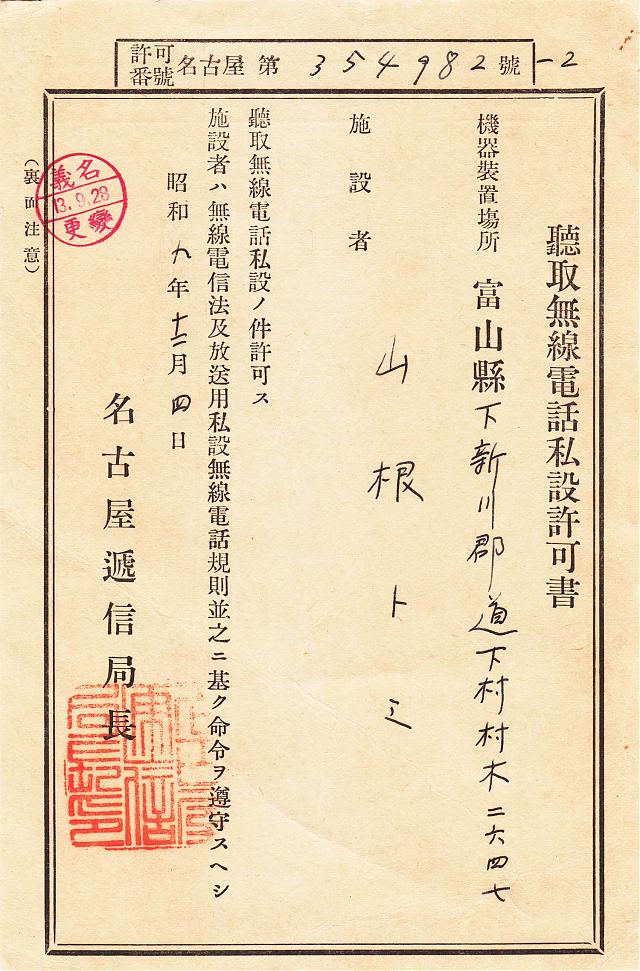 許可番號 名古屋 第 354982 號 -2
聽取無線電話私設許可書
機器装置場所 富山縣下新川郡道下村村木二六四七
施設者 山根トミ
聽取無線電話私設ノ件許可ス
施設者ハ無線電信法及放送用私設無線電話規則並之ニ基ク命令ヲ遵守スヘシ
昭和九年十二月四日
名古屋遞信局長
(裏面注意)
名義
13.9.28
變更